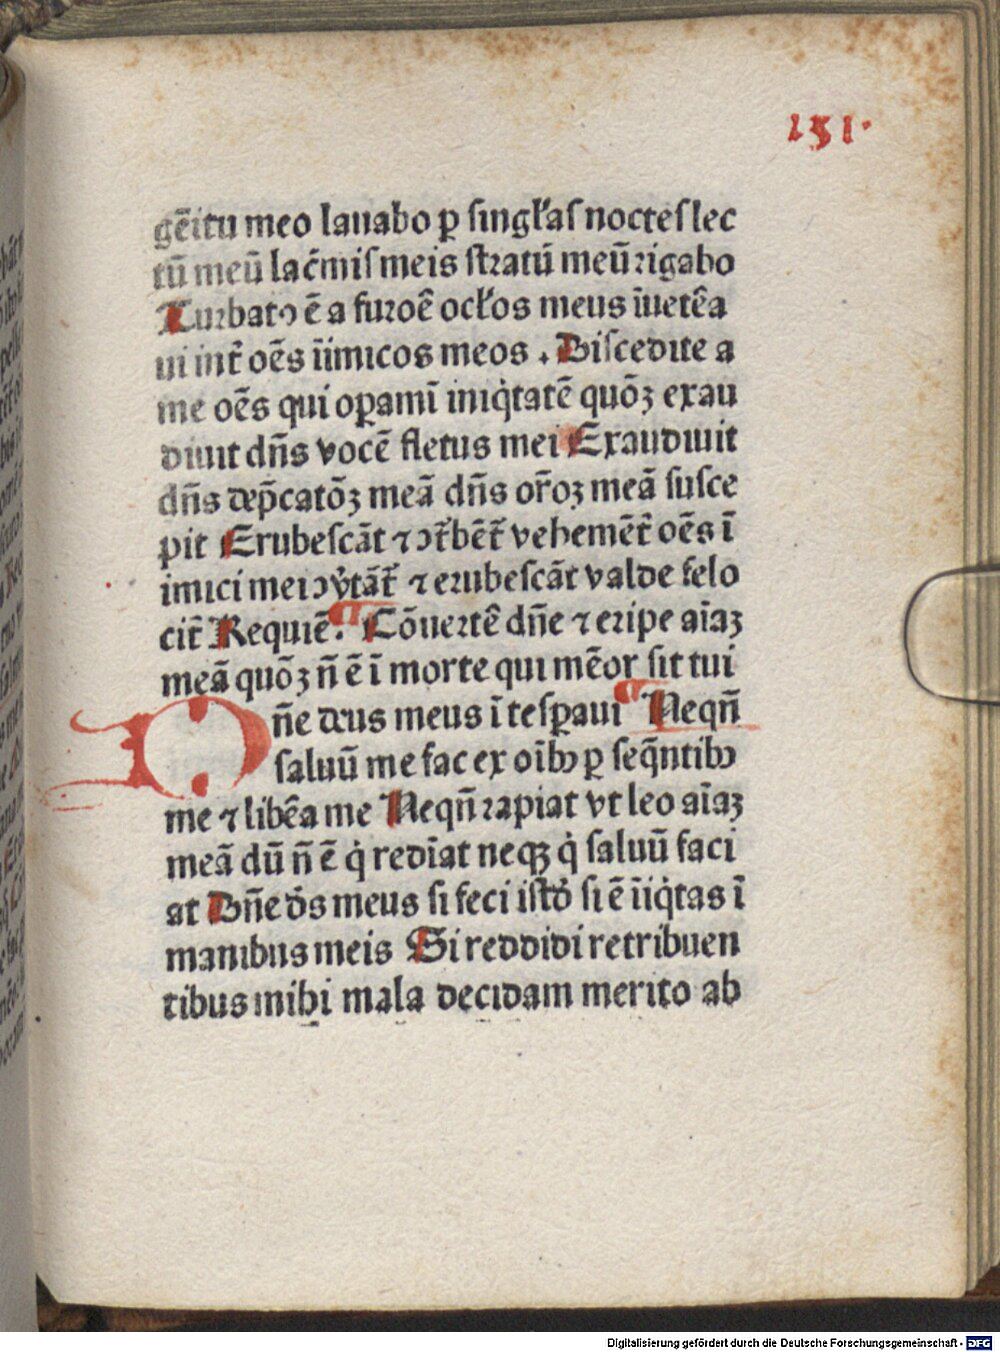 151.
gēitu meo lauabo ꝑ ſingĺaſ nocteſ lec
tū meū lac̄miſ meis ſtratū meū rigabo
Turbatꝰ ē a furoē ocĺos meus īuetēa
ui int̄ oēs iīmicos meos . Diſcedite a
me oēs qui oꝑamī iniq̇tatē quōꝫ exau
diuit dn̄s vocē fletus mei Exaudiuit
dn̄s dep̄catōꝫ meā dn̄s or̄oꝫ meā ſuſce
pit Erubeſcāt ⁊ ꝯt̄bēt̄ vehemēt̄ oēs ī
imici mei ꝯv̇tāt̄ ⁊ erubeſcāt valde ſelo
cit̄ Requiē. Cōuertē dn̄e ⁊ eripe aīaꝫ
meā quōꝫ n̄ ē ī morte qui mēor ſit tui
Dn̄e deus meus ī te ſꝑaui Neqn̄
ſaluū me fac ex oībꝫ ꝑ ſeq̄ntibꝫ
me ⁊ libēa me Neqn̄ rapiat vt leo aīaꝫ
meā dū n̄ ē q̇ redīat neqꝫ q̇ ſaluū faci
at Dn̄e ds̄ meus ſi feci iſtḋ ſi ē iīq̇tas ī
manibus meis Si reddidi retribuen
tibus mihi mala decidam merito ab
Digitalisierung gefördert durch die Deutsche Forschungsgemeinschaft - DFG